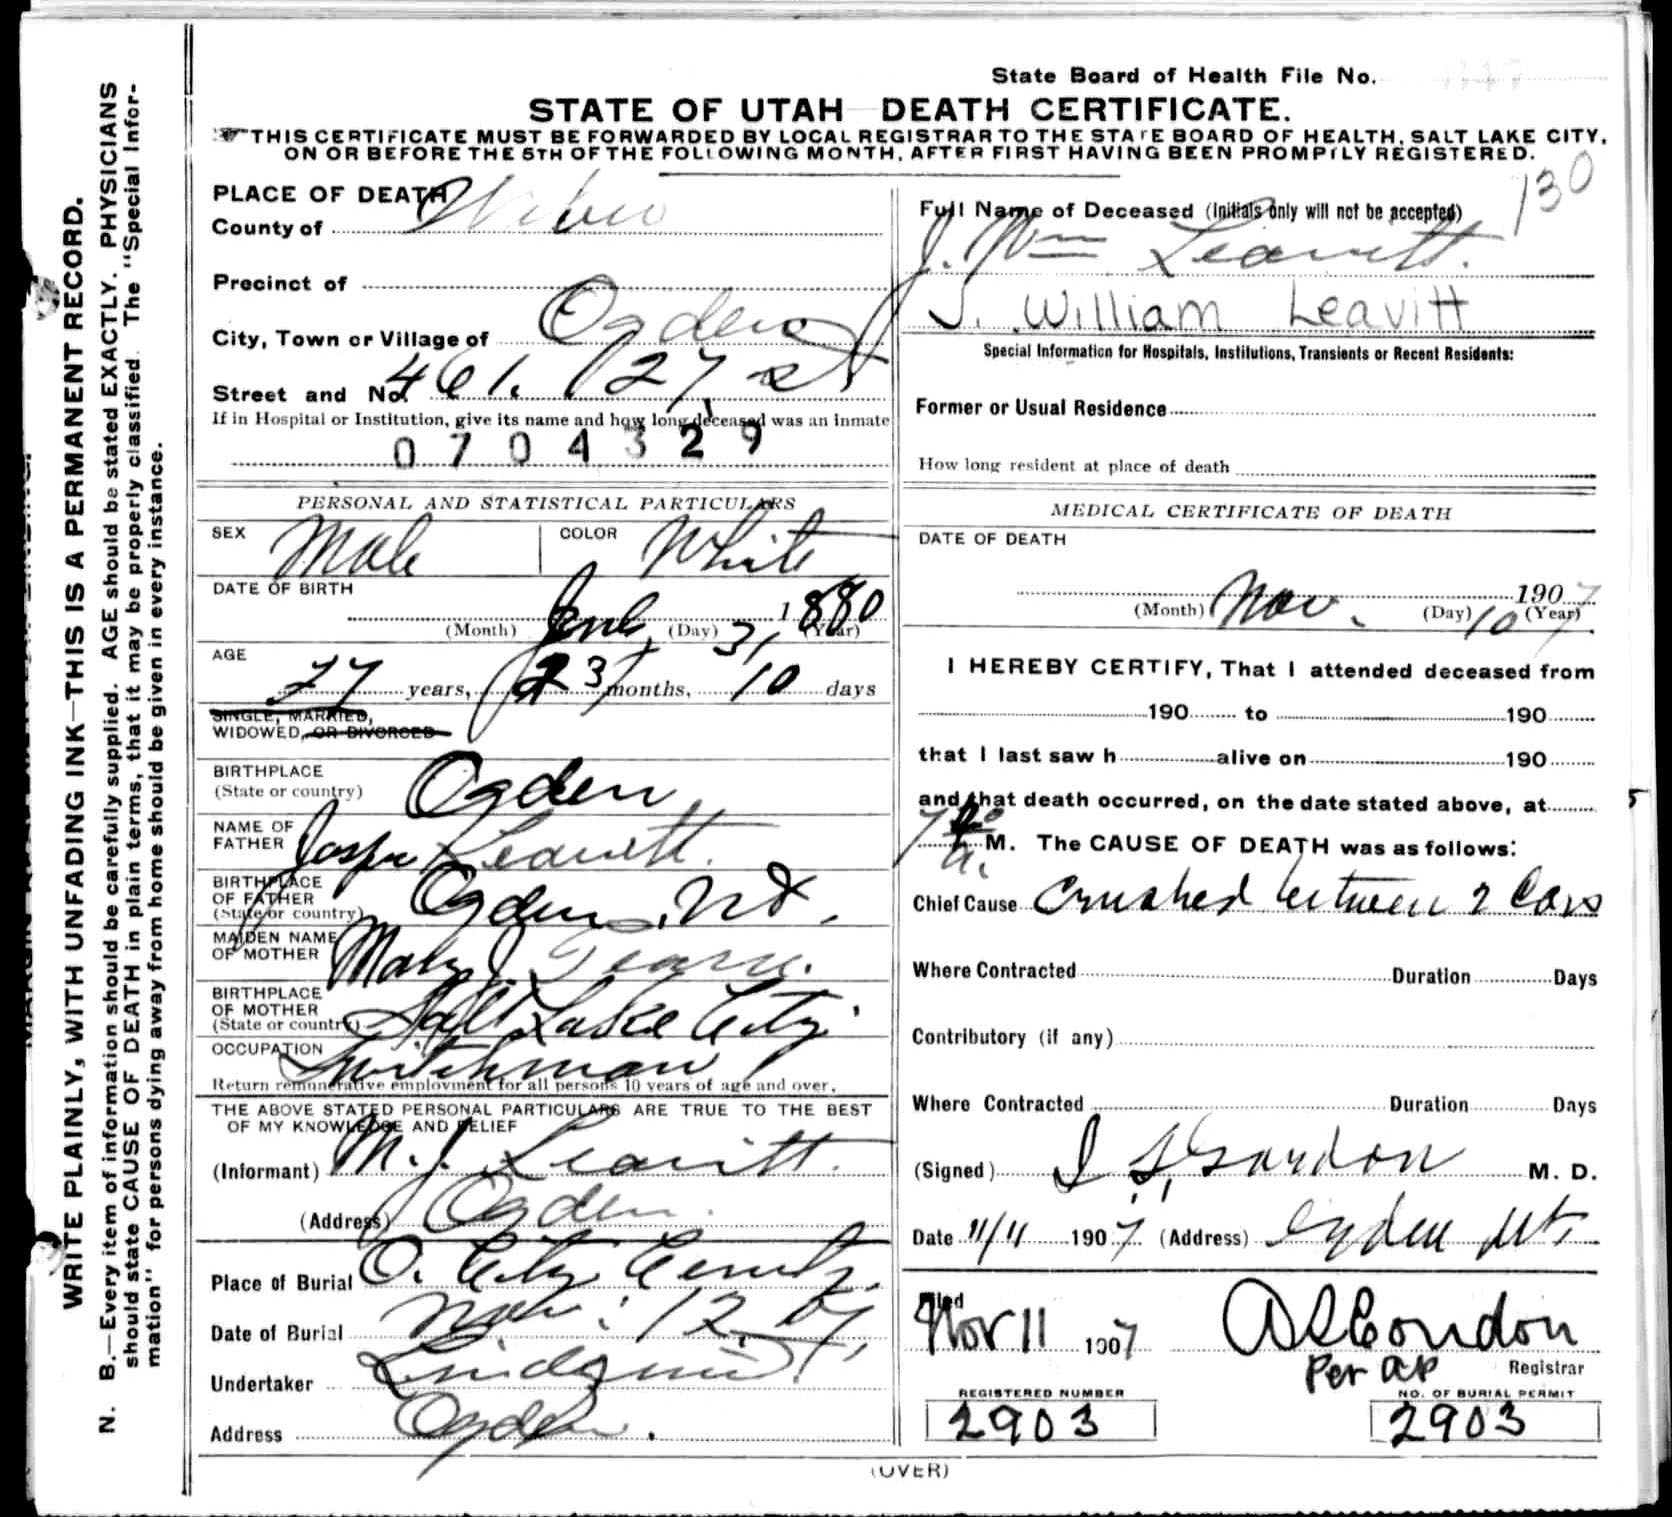 State Board of Health File No.
STATE OF UTAH—DEATH CERTIFICATE.
THIS CERTIFICATE MUST BE FORWARDED BY LOCAL REGISTRAR TO THE STATE BOARD OF HEALTH, SALT LAKE CITY,
ON OR BEFORE THE 5TH OF THE FOLLOWING MONTH, AFTER FIRST HAVING BEEN PROMPTLY REGISTERED.
130
WRITE PLAINLY, WITH UNFADING INK—THIS IS A PERMANENT RECORD.
N. B.—Every item of information should be carefully supplied. AGE should be stated EXACTLY. PHYSICIANS
should state CAUSE OF DEATH in plain terms, that it may be properly classified. The "Special Infor-
mation" for persons dying away from home should be given in every instance.
PLACE OF DEATH
County of Weber
Precinct of
City, Town or Village of Ogden
Street and No. 461. 27 st
If in Hospital or Institution, give its name and how long deceased was an inmate
0704329
PERSONAL AND STATISTICAL PARTICULARS
SEX Male COLOR White
DATE OF BIRTH
(Month) (Day) 31 1880 (Year)
AGE
27 years, 3 months, 10 days
SINGLE, MARRIED,
WIDOWED, OR DIVORCED
BIRTHPLACE
(State or country) Ogden
NAME OF
FATHER Leavitt.
BIRTHPLACE
OF FATHER
(State or country) Ogden, Ut.
MAIDEN NAME
OF MOTHER Mary J.
BIRTHPLACE
OF MOTHER
(State or country) Salt Lake City
OCCUPATION Switchman
Return remunerative employment for all persons 10 years of age and over.
THE ABOVE STATED PERSONAL PARTICULARS ARE TRUE TO THE BEST
OF MY KNOWLEDGE AND BELIEF
(Informant) M. J. Leavitt.
(Address) Ogden.
Place of Burial O. City Cemty.
Date of Burial Nov. 12, 07
Undertaker Lindquist
Address Ogden.
Full Name of Deceased (Initials only will not be accepted)
J. Wm Leavitt.
J. William Leavitt
Special Information for Hospitals, Institutions, Transients or Recent Residents:
Former or Usual Residence
How long resident at place of death
MEDICAL CERTIFICATE OF DEATH
DATE OF DEATH
(Month) Nov. (Day) 10 1907 (Year)
I HEREBY CERTIFY, That I attended deceased from
190 to 190
that I last saw h alive on 190
and that death occurred, on the date stated above, at
M. The CAUSE OF DEATH was as follows:
Chief Cause Crushed between 2 Cars
Where Contracted Duration Days
Contributory (if any)
Where Contracted Duration Days
(Signed) Gordon M. D.
Date 11/11 1907. (Address) Ogden Ut
Filed
Nov 11 1907 Condon
Per AP Registrar
REGISTERED NUMBER
2903
NO. OF BURIAL PERMIT
2903
(OVER)